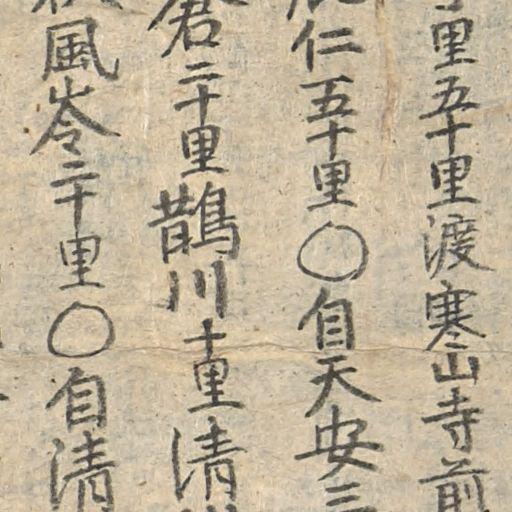 里五十里渡寒山寺前
仁五十里〇自天安三
倉二十里鵲川十里清
風岺二十里〇自清